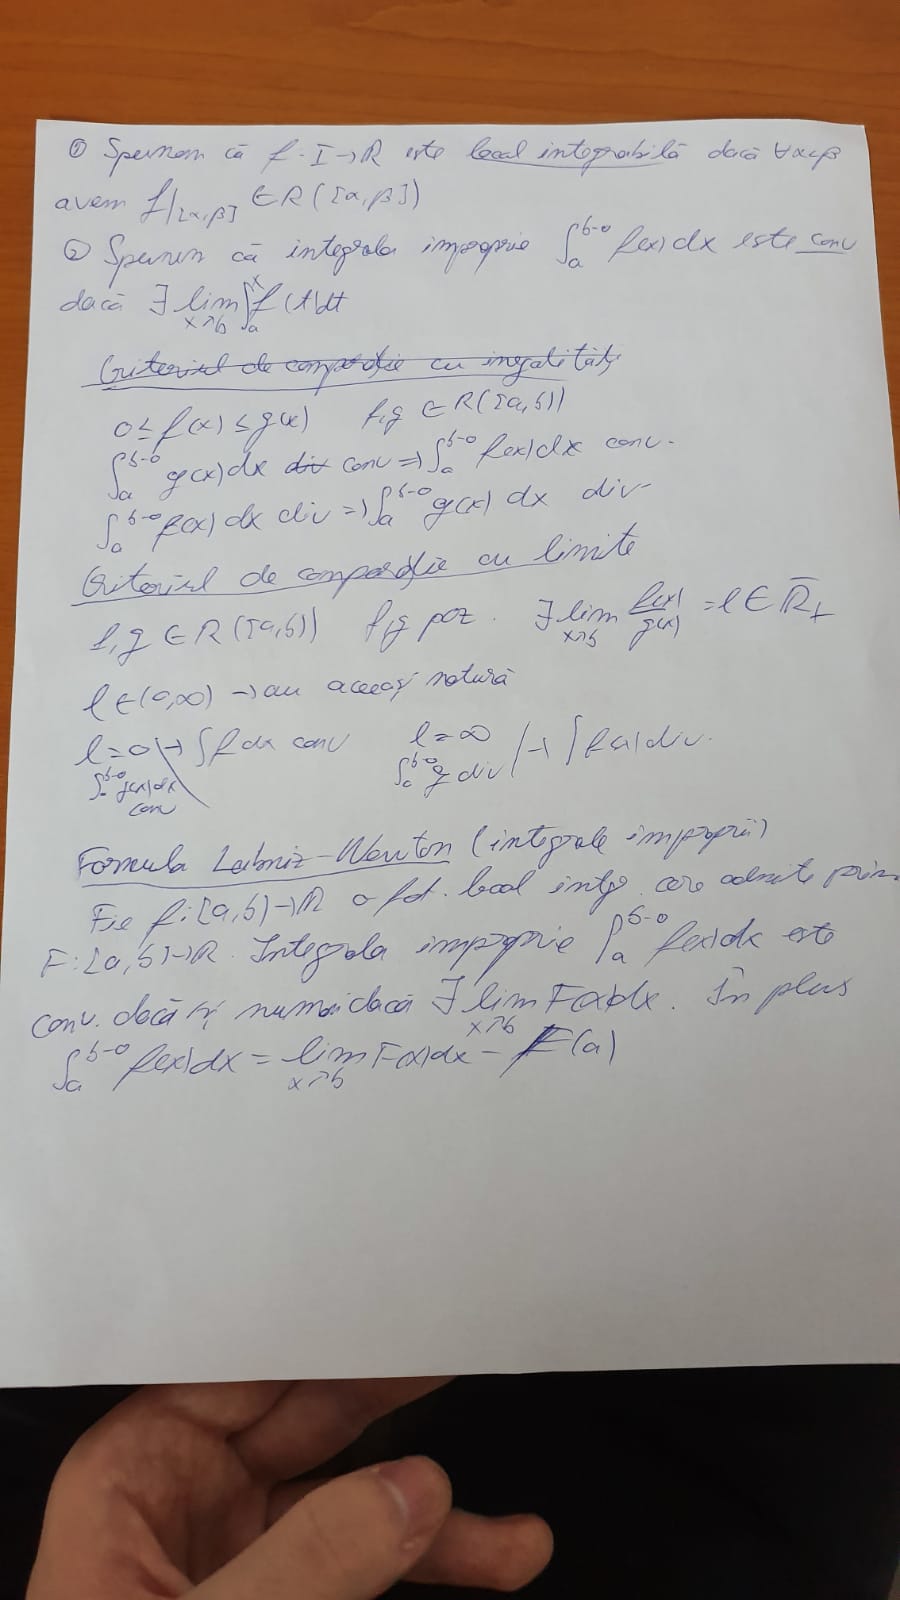 ① Spunem că f: I → R este local integrabilă dacă ∀α<β
avem f|[α,β] ∈ R([α,β])
② Spunem că integrala improprie ∫ₐ^{b-0} f(x)dx este conv
dacă ∃ lim_{x↗b} ∫ₐ^x f(t)dt
Criteriul de comparație cu inegalități
0 ≤ f(x) ≤ g(x) f,g ∈ R([a,b))
∫ₐ^{b-0} g(x)dx div conv ⇒ ∫ₐ^{b-0} f(x)dx conv.
∫ₐ^{b-0} f(x)dx div ⇒ ∫ₐ^{b-0} g(x)dx div
Criteriul de comparație cu limite
f,g ∈ R([a,b)) f,g poz. ∃ lim_{x↗b} f(x)/g(x) = l ∈ R̄₊
l ∈ (0,∞) → au aceeași natură
l=0 → ∫f dx conv l=∞
∫ₐ^{b-0} g(x)dx conv ∫ₐ^{b-0} g div → ∫f(x) div.
Formula Leibniz-Newton (integrale improprii)
Fie f: [a,b) → R o fct. local intg. care admite prim
F: [a,b) → R. Integrala improprie ∫ₐ^{b-0} f(x)dx este
conv. dacă și numai dacă ∃ lim_{x↗b} F(x)dx. În plus
∫ₐ^{b-0} f(x)dx = lim_{x↗b} F(x)dx - F(a)